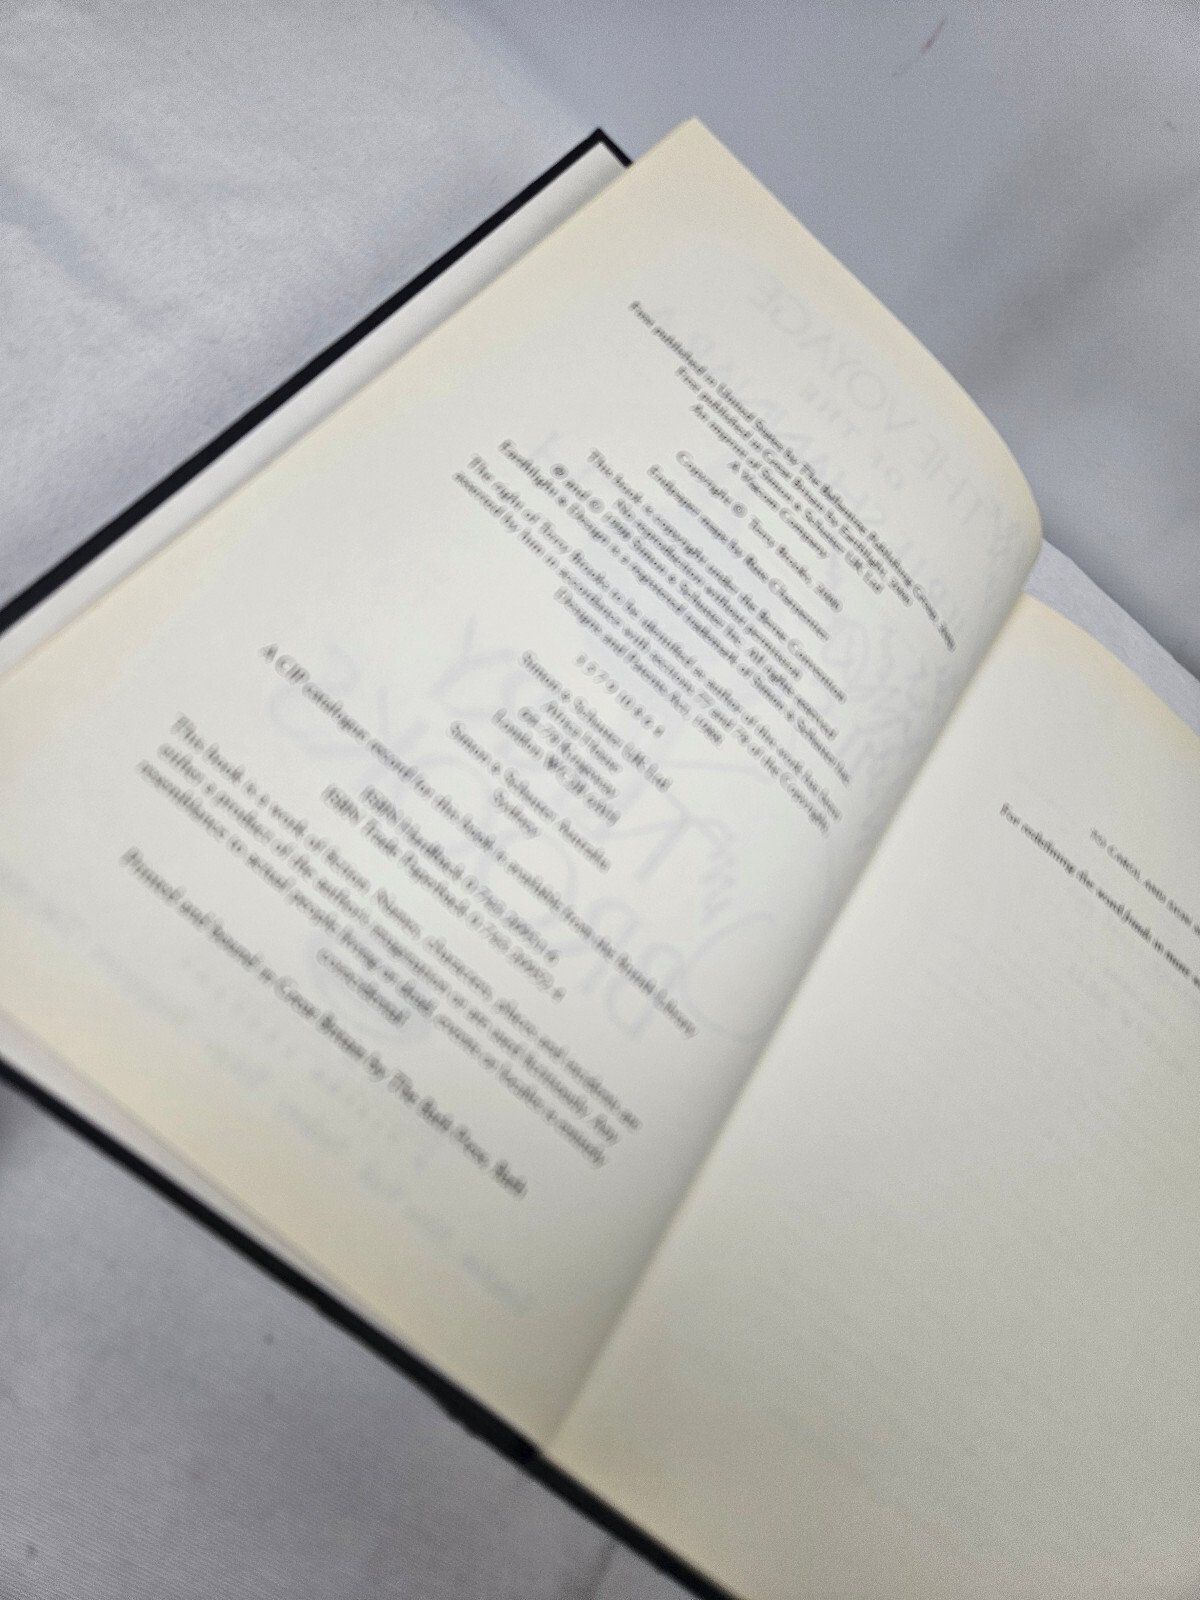 First published in United States by The Ballantine Publishing Group, 2000
First published in Great Britain by Earthlight, 2000
An imprint of Simon & Schuster UK Ltd
A Viacom Company
Copyright © Terry Brooks, 2000
Endpaper maps by Russ Charpentier
This book is copyright under the Berne Convention
No reproduction without permission
® and © 1998 Simon & Schuster Inc. All rights reserved
Earthlight & Design is a registered trademark of Simon & Schuster Inc.
The right of Terry Brooks to be identified as author of this work has been
asserted by him in accordance with sections 77 and 78 of the Copyright,
Designs and Patents Act, 1988.
Simon & Schuster UK Ltd
Africa House
64-78 Kingsway
London WC2B 6AH
Simon & Schuster Australia
Sydney
A CIP catalogue record for this book is available from the British Library
ISBN Hardback
ISBN Trade Paperback
This book is a work of fiction. Names, characters, places and incidents are
either a product of the author's imagination or are used fictitiously. Any
resemblance to actual people, living or dead, events or locales is entirely
coincidental.
Printed and bound in Great Britain by The Bath Press, Bath
TO CAROL AND DON
For redefining the word friends in more